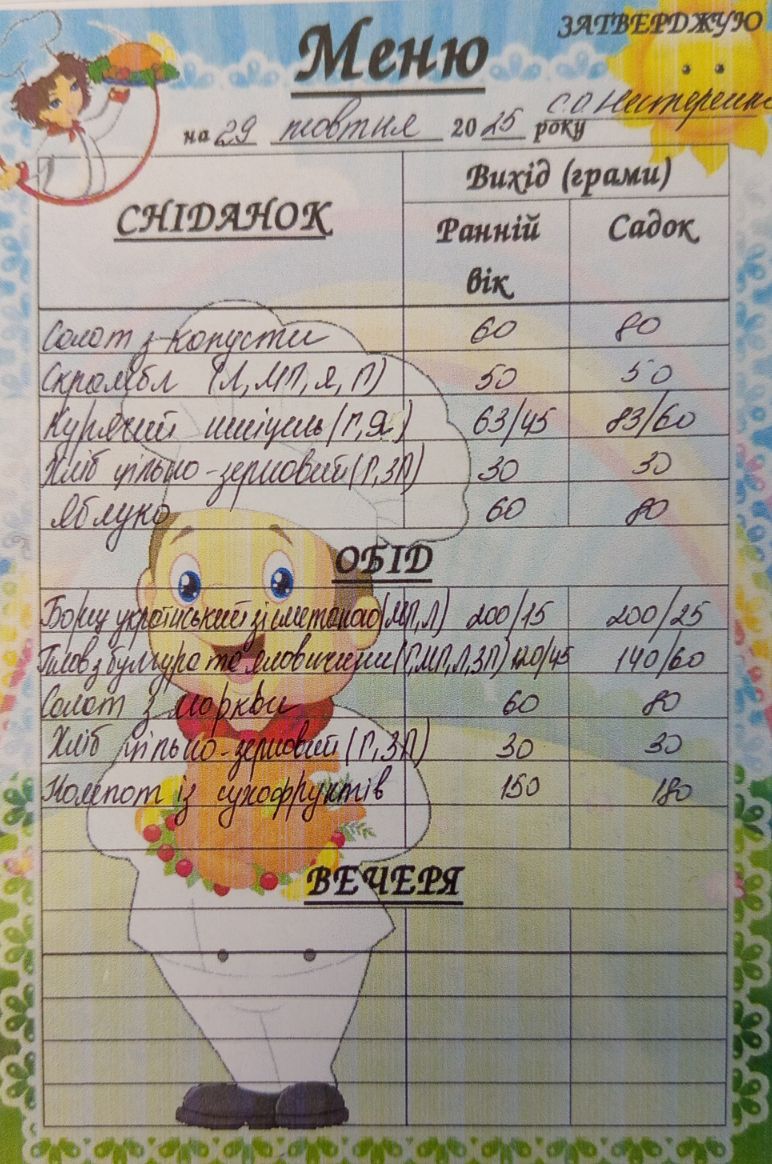 ЗАТВЕРДЖУЮ
Меню
на 29 жовтня 2025 року
СНІДАНОК
Вихід (грами)
Ранній вік
Садок
Салат з капусти 60 80
Скрамбл (Л, МП, Я, П) 50 50
Курячий шніцель (Г, Я) 63/45 83/60
Хліб цільно-зерновий (Г, ЗП) 30 30
Яблуко 60 80
ОБІД
Борщ український зі сметаною (МП, Л) 200/15 200/25
Плов з булгура та яловичини (Г, МП, Л, ЗП) 120/45 140/60
Салат з моркви 60 80
Хліб цільно-зерновий (Г, ЗП) 30 30
Компот із сухофруктів 150 180
ВЕЧЕРЯ